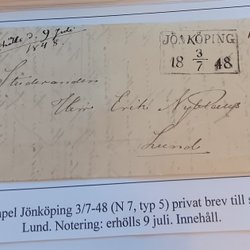 d: 9 juli
1848.
JÖNKÖPING
3
18 48
7
Studeranden
Herr Erik
Lund
pel Jönköping 3/7-48 (N 7, typ 5) privat brev till s
Lund. Notering: erhölls 9 juli. Innehåll.